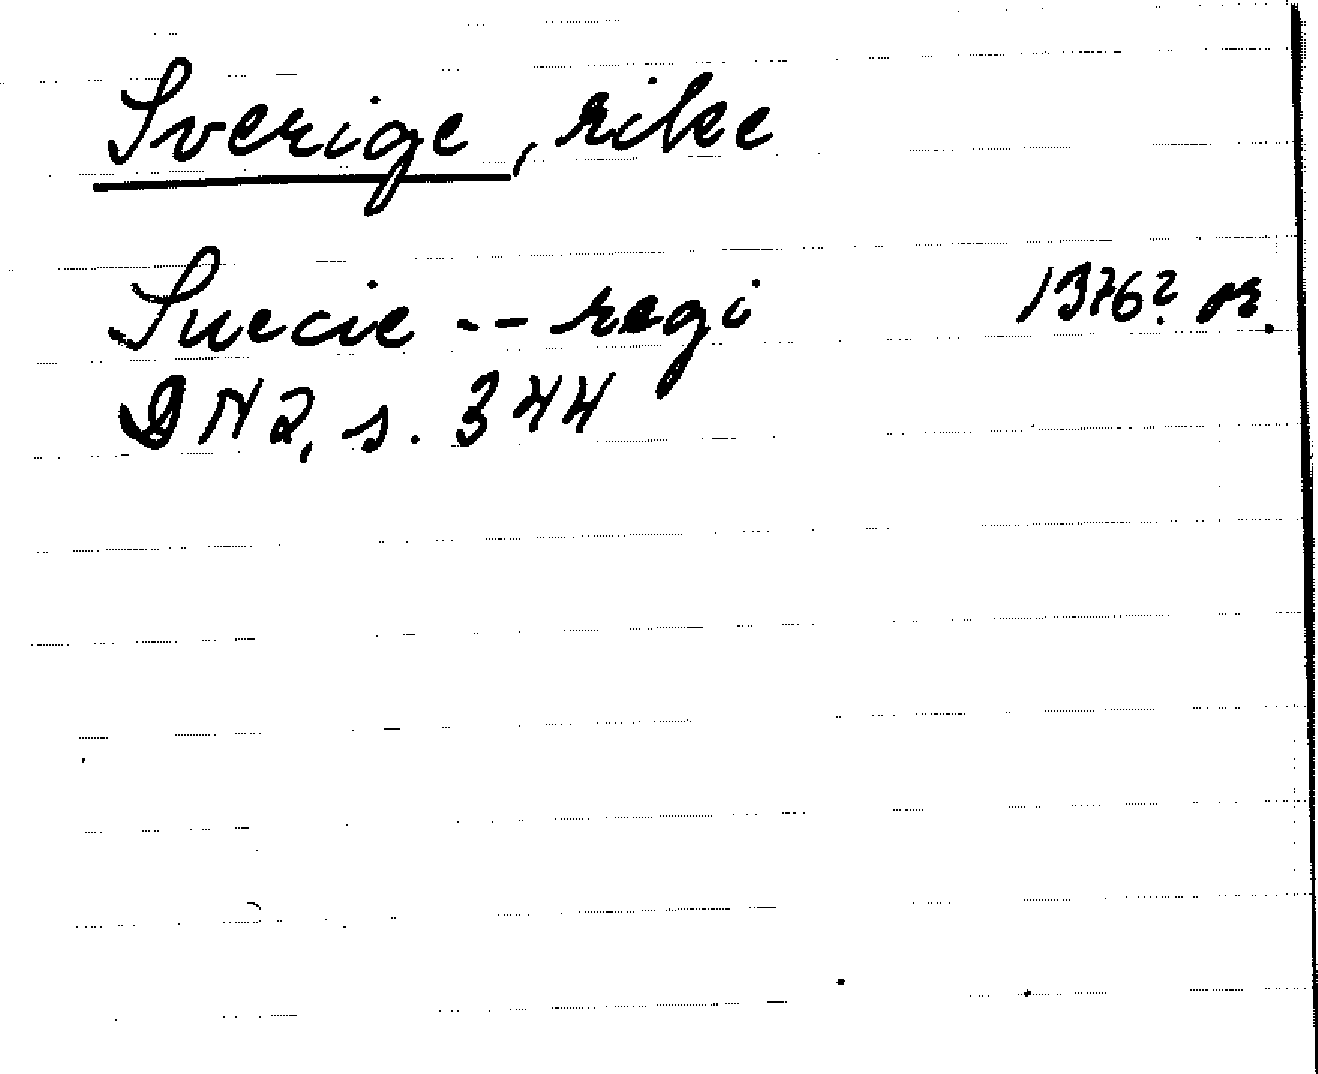 Sverige, rike
Suecie -- regi 1376? or.
DN 2, s. 344